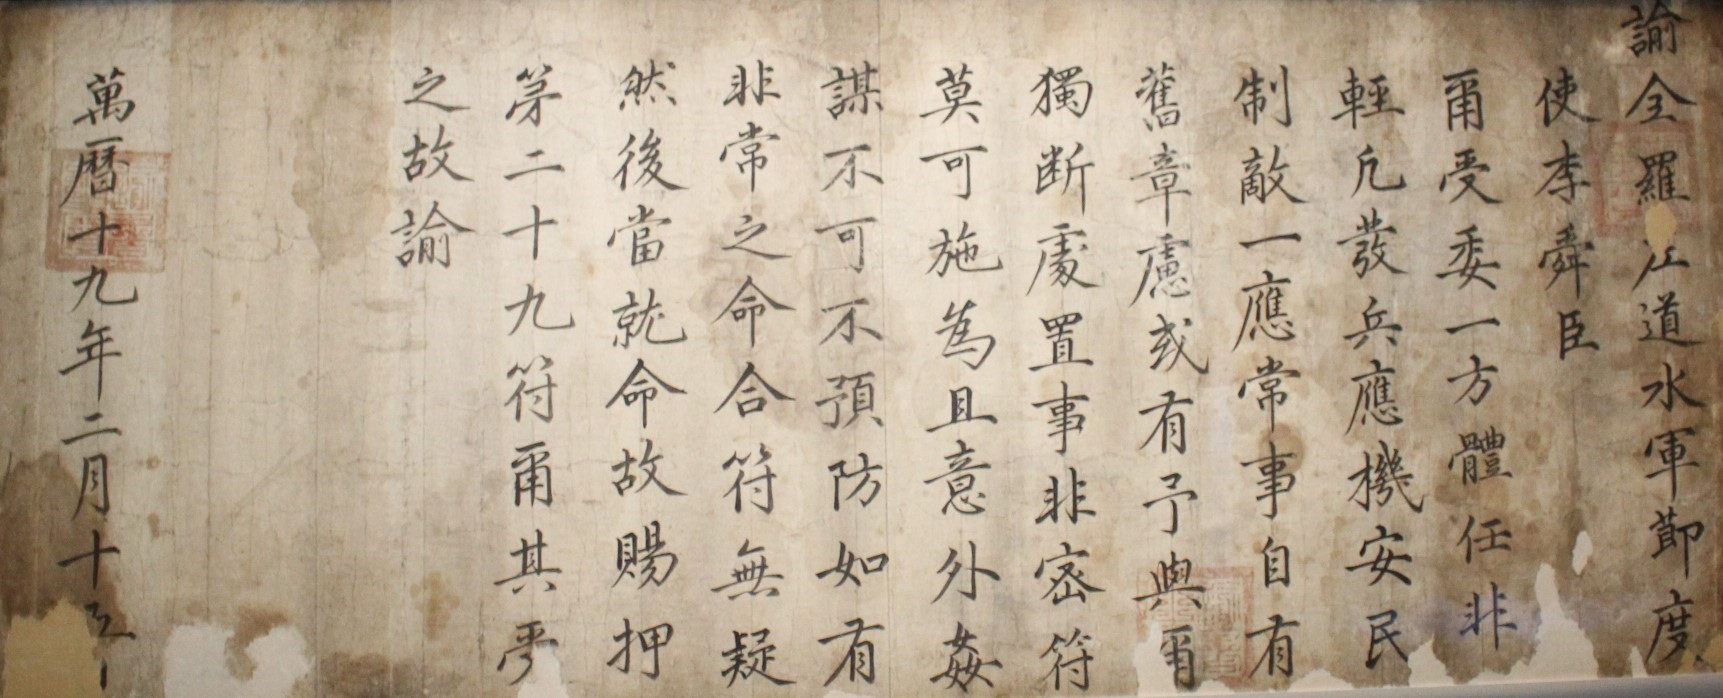 諭全羅左道水軍節度
使李舜臣
爾受委一方體任非
輕凡發兵應機安民
制敵一應常事自有
舊章慮或有予與爾
獨断處置事非密符
莫可施為且意外姦
謀不可不預防如有
非常之命合符無疑
然後當就命故賜押
第二十九符爾其受
之故諭
萬曆十九年二月十